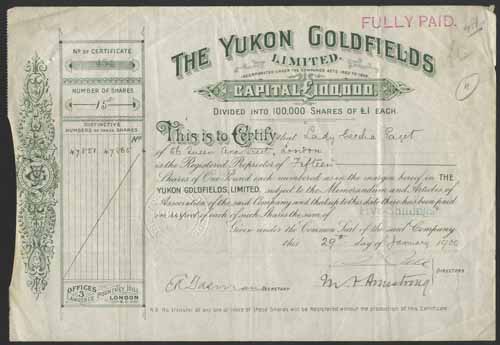 FULLY PAID.
Nº OF CERTIFICATE
NUMBER OF SHARES
15
DISTINCTIVE
NUMBERS OF THESE SHARES
Nº
THE YUKON GOLDFIELDS
LIMITED.
INCORPORATED UNDER THE COMPANIES ACTS
CAPITAL £100,000,
DIVIDED INTO 100,000 SHARES OF £1 EACH.
This is to Certify that Lady Cecilia Paget
of 66 Queen Ann Street, London
is the Registered Proprietor of Fifteen
Shares of One Pound each numbered as in the margin hereof in THE
YUKON GOLDFIELDS, LIMITED, subject to the Memorandum and Articles of
Association of the said Company and that up to this date there has been paid
in respect of each of such Shares the sum of Five Shillings
Given under the Common Seal of the said Company
this 29th day of January 1900
DIRECTORS
SECRETARY
M. Armstrong
OFFICES
3
LONDON
N.B. No transfer of any one or more of these Shares will be Registered without the production of this Certificate